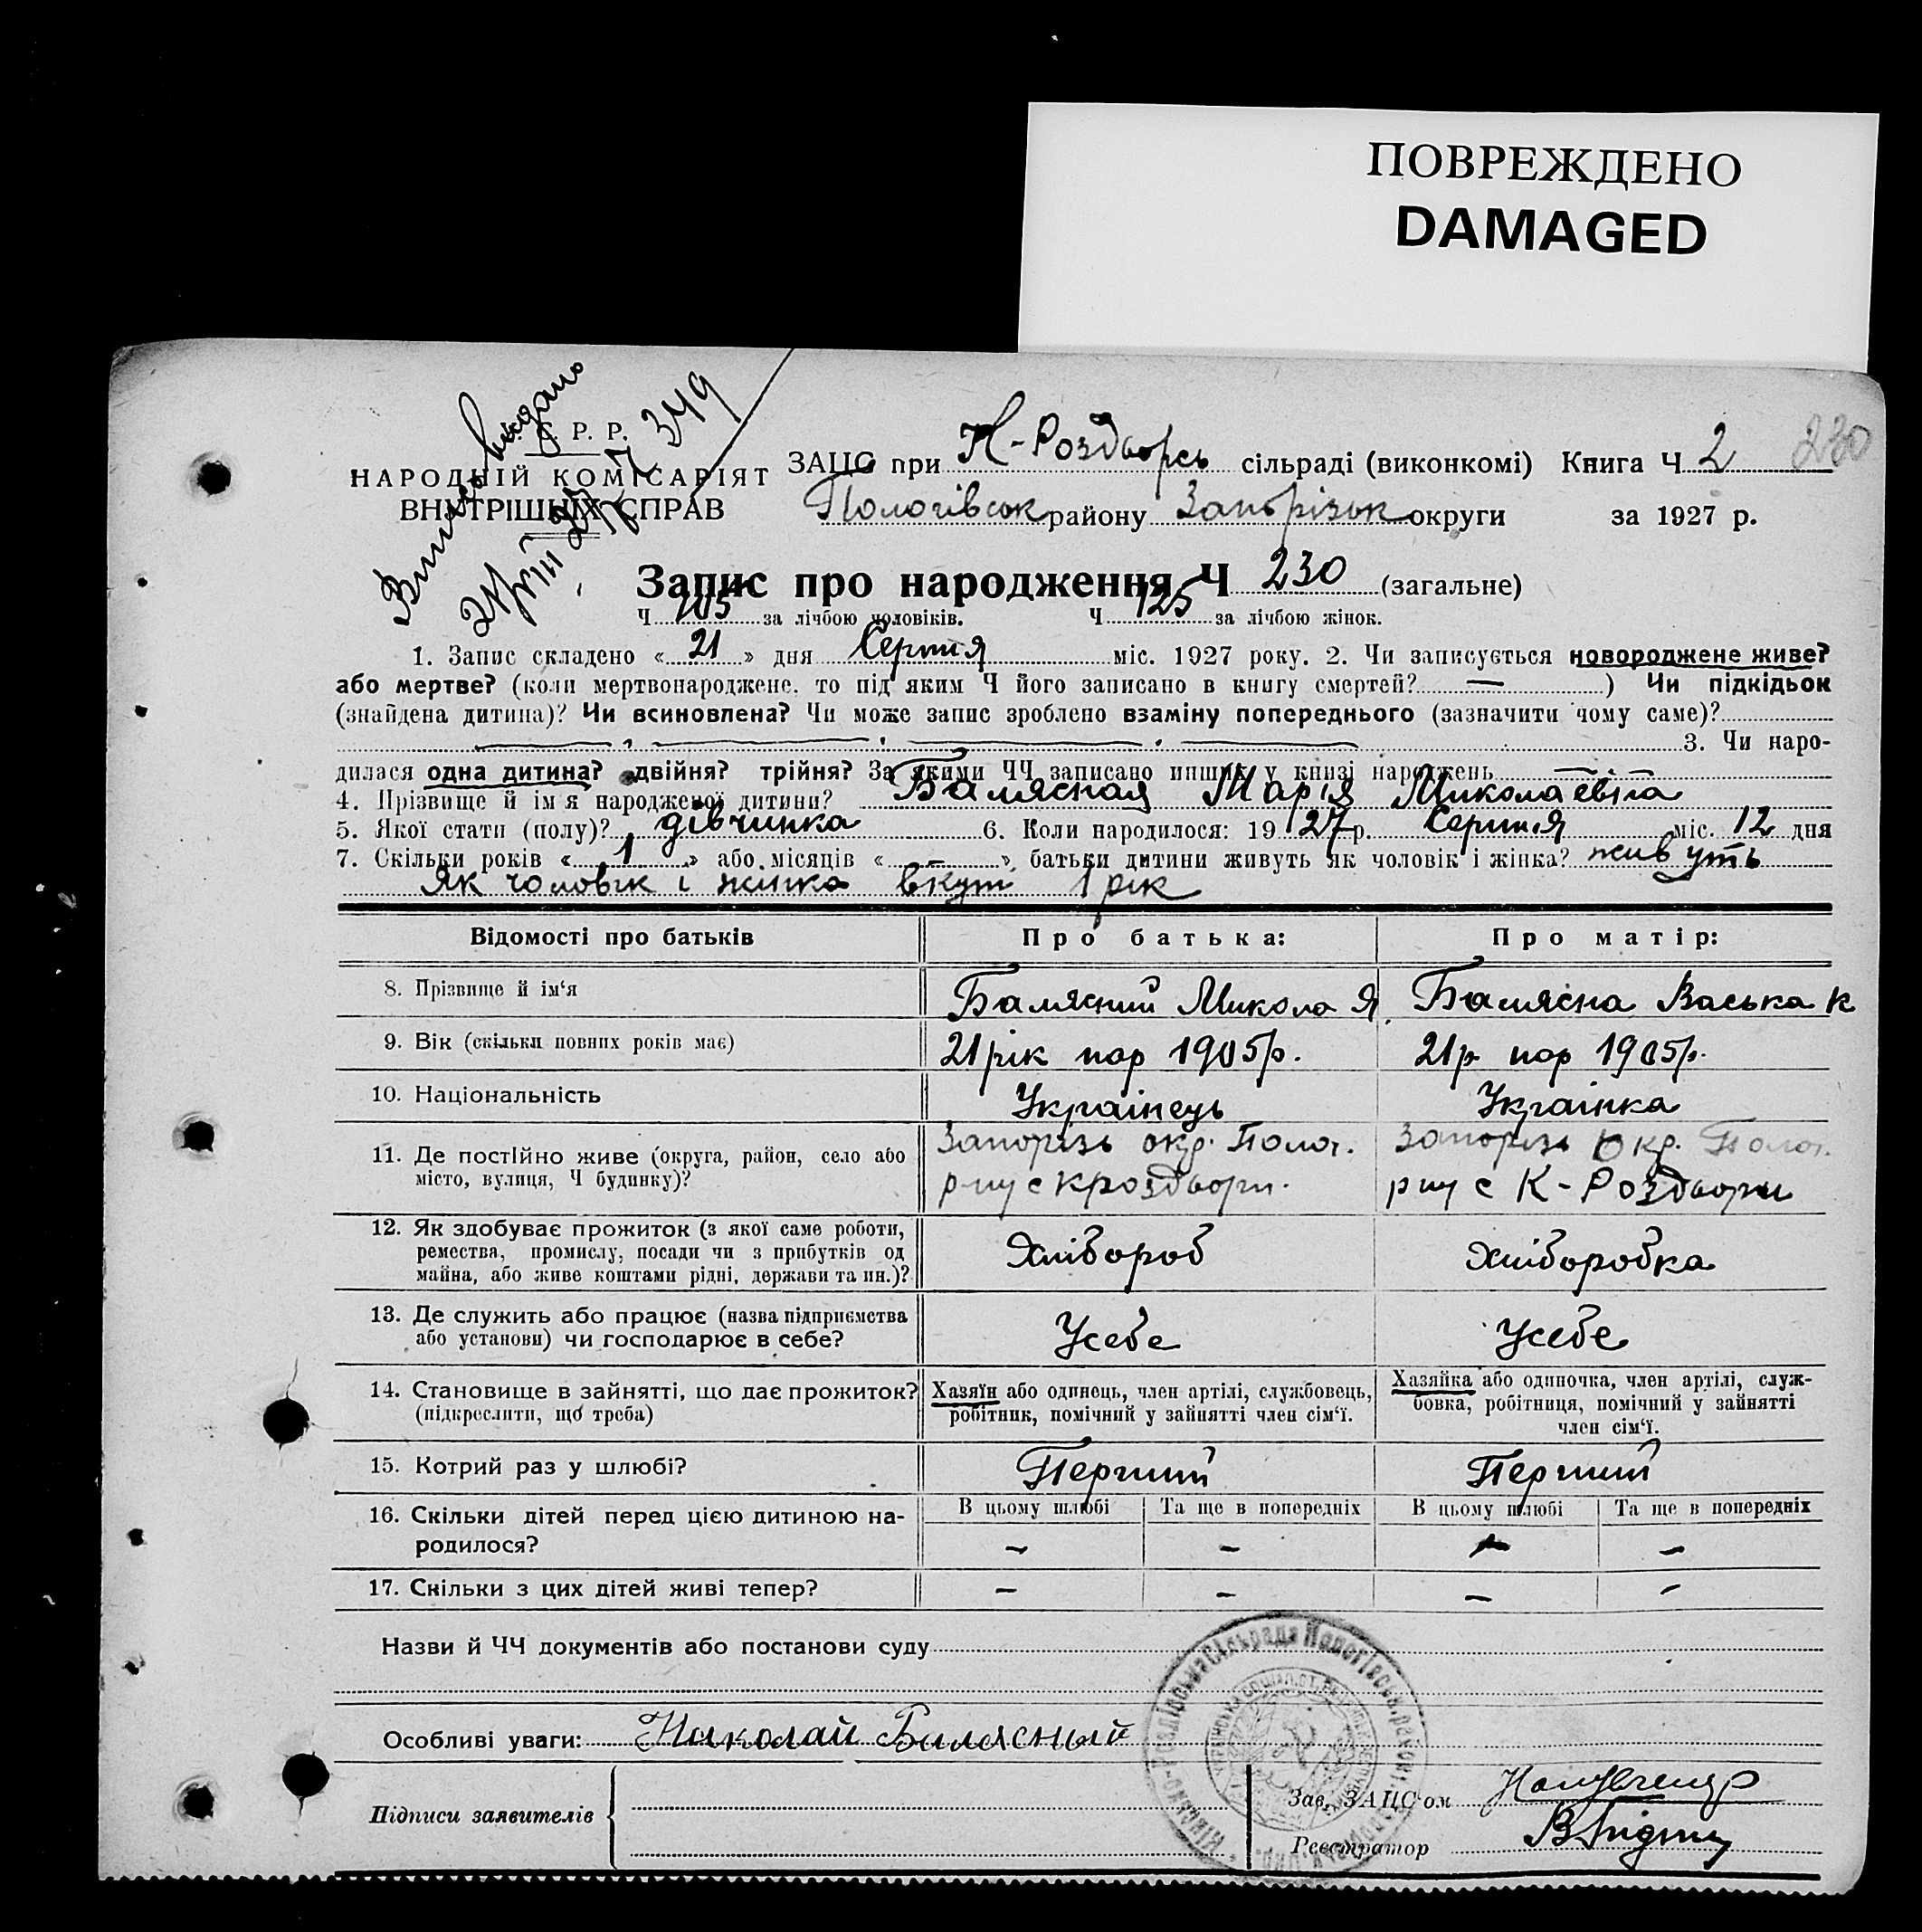 ПОВРЕЖДЕНО
DAMAGED
Випись видано
349
С. Р. Р.
НАРОДНІЙ КОМІСАРІЯТ
ВНУТРІШНІХ СПРАВ
ЗАЦС при К-Роздворсь сільраді (виконкомі) Книга Ч 2 230
Пологівськ району Запорізьк округи за 1927 р.
Запис про народження Ч 230 (загальне)
Ч 105 за лічбою чоловіків. Ч 125 за лічбою жінок.
1. Запис складено « 21 » дня Серпня міс. 1927 року. 2. Чи записується новороджене живе?
або мертве? (коли мертвонароджене, то під яким Ч його записано в книгу смертей? — ) Чи підкідьок
(знайдена дитина)? Чи всиновлена? Чи може запис зроблено взаміну попереднього (зазначити чому саме)?
3. Чи наро-
дилася одна дитина? двійня? трійня? За якими ЧЧ записано инших у книзі народжень
4. Прізвище й ім'я народженої дитини? Балясная Марія Миколаєвіна
5. Якої стати (полу)? дівчинка 6. Коли народилося: 19 27 р. Серпня міс. 12 дня
7. Скільки років « 1 » або місяців « - » батьки дитини живуть як чоловік і жінка? живуть
Як чоловік і жінка вкупі 1 рік
Відомості про батьків Про батька: Про матір:
8. Прізвище й ім'я Балясний Микола Я. Балясна Васька К
9. Вік (скільки повних років має) 21 рік нар 1905 р. 21 р. нар 1905 р.
10. Національність Українець Українка
11. Де постійно живе (округа, район, село або Запорізь окр. Полог. Запорізь Окр. Полог.
місто, вулиця, Ч будинку)? р-ну с Кроздвори. р-ну с К-Роздвори
12. Як здобуває прожиток (з якої саме роботи,
ремества, промислу, посади чи з прибутків од Хлібороб Хліборобка
майна, або живе коштами рідні, держави та ин.)?
13. Де служить або працює (назва підприємства
або установи) чи господарює в себе? Усебе Усебе
14. Становище в зайнятті, що дає прожиток? Хазяїн або одинець, член артілі, службовець, Хазяйка або одиночка, член артілі, служ-
(підкреслити, що треба) робітник, помічний у зайнятті член сім'ї. бовка, робітниця, помічний у зайнятті
член сім'ї.
15. Котрий раз у шлюбі? Перший Перший
16. Скільки дітей перед цією дитиною на- В цьому шлюбі Та ще в попередніх В цьому шлюбі Та ще в попередніх
родилося? - - - -
17. Скільки з цих дітей живі тепер? - - - -
Назви й ЧЧ документів або постанови суду
Особливі уваги: Николай Балясный
Підписи заявителів
Зав. ЗАЦС'ом
Реєстратор